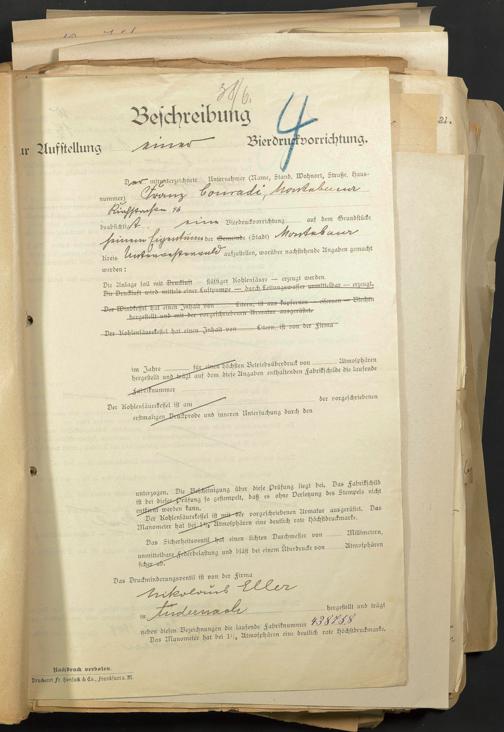 38/6.
4
Beschreibung
zur Aufstellung einer Bierdruckvorrichtung.
Der mitunterzeichnete Unternehmer (Name, Stand, Wohnort, Straße, Haus-
nummer) Franz Conradi, Montabaur
Kirchstraße 46
beabsichtigt eine Bierdruckvorrichtung auf dem Grundstücke
seinem Eigentum der Gemeinde (Stadt) Montabaur
Kreis Unterwesterwald aufzustellen, worüber nachstehende Angaben gemacht
werden:
Die Anlage soll mit Druckluft – flüssiger Kohlensäure – erzeugt werden.
Die Druckluft wird mittels einer Luftpumpe – durch Leitungswasser unmittelbar – erzeugt.
Der Windkessel hat einen Inhalt von Litern, ist aus kupfernen – eisernen – Blechen
hergestellt und mit der vorgeschriebenen Armatur ausgerüstet.
Der Kohlensäurekessel hat einen Inhalt von Litern, ist von der Firma
im Jahre für einen höchsten Betriebsüberdruck von Atmosphären
hergestellt und trägt auf dem diese Angaben enthaltenden Fabrikschilde die laufende
Fabriknummer
Der Kohlensäurekessel ist am der vorgeschriebenen
erstmaligen Druckprobe und inneren Untersuchung durch den
unterzogen. Die Bescheinigung über diese Prüfung liegt bei. Das Fabrikschild
ist bei dieser Prüfung so gestempelt, daß es ohne Verletzung des Stempels nicht
entfernt werden kann.
Der Kohlensäurekessel ist mit der vorgeschriebenen Armatur ausgerüstet. Das
Manometer hat bei 1½ Atmosphären eine deutlich rote Höchstdruckmarke.
Das Sicherheitsventil hat einen lichten Durchmesser von Millimetern,
unmittelbare Federbelastung und bläst bei einem Überdruck von Atmosphären
sicher ab.
Das Druckminderungsventil ist von der Firma
Nikolaus Eller
in Andernach hergestellt und trägt
neben diesen Bezeichnungen die laufende Fabriknummer 438758
Das Manometer hat bei 1½ Atmosphären eine deutlich rote Höchstdruckmarke.
Nachdruck verboten.
Druckerei Fr. Honsack & Co., Frankfurt a. M.